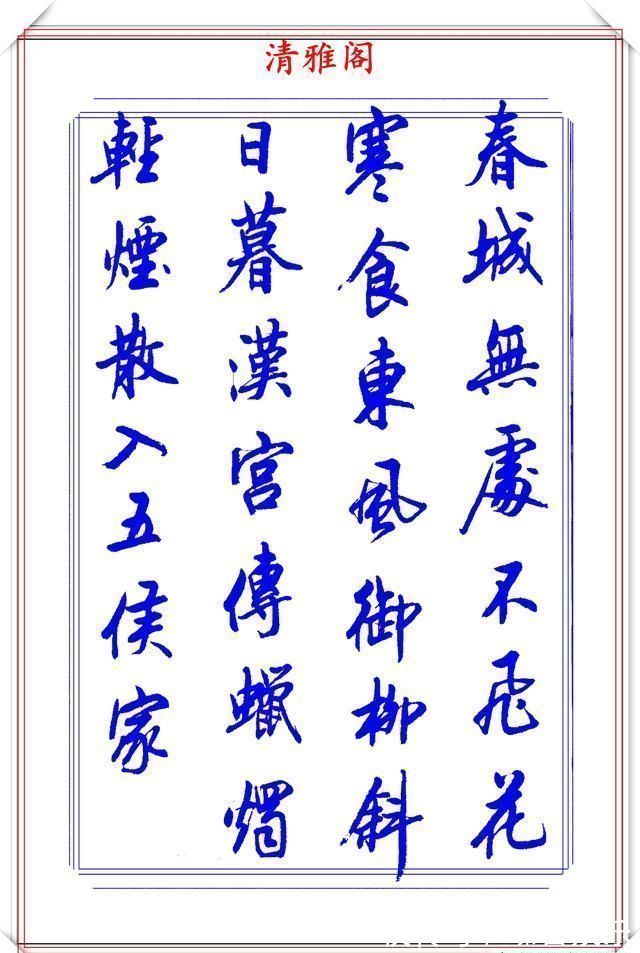 清雅阁
春城無處不飛花
寒食東風御柳斜
日暮漢宮傳蠟燭
輕煙散入五侯家